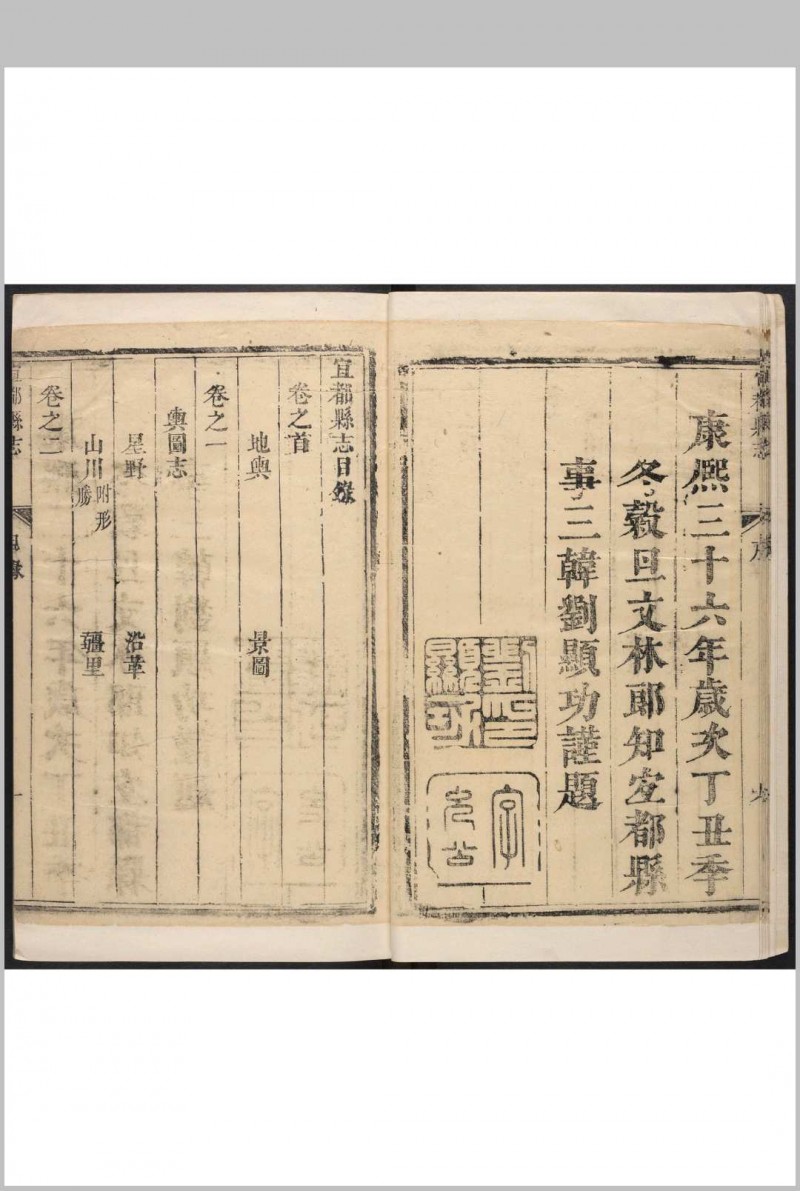 宜都縣志
序
康熙三十六年歲次丁丑季
冬穀旦文林郎知宜都縣
事三韓劉顯功謹題
宜都縣志目錄
卷之首
地輿
景圖
卷之一
輿圖志
星野
沿革
山川附形勝
疆里
卷之二
宜都縣志
目錄
一